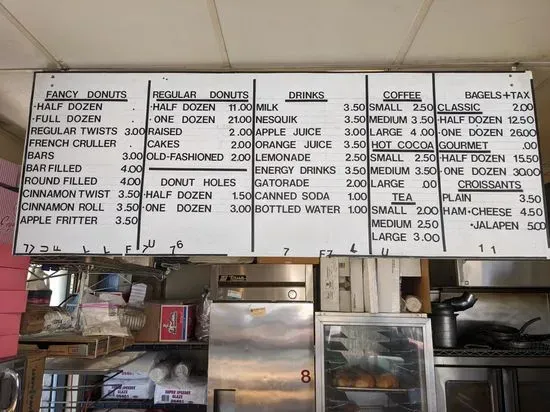 FANCY DONUTS
·HALF DOZEN .
·FULL DOZEN .
REGULAR TWISTS 3.00
FRENCH CRULLER .
BARS 3.00
BAR FILLED 4.00
ROUND FILLED 4.00
CINNAMON TWIST 3.50
CINNAMON ROLL 3.50
APPLE FRITTER 3.50
REGULAR DONUTS
·HALF DOZEN 11.00
·ONE DOZEN 21.00
RAISED 2.00
CAKES 2.00
OLD-FASHIONED 2.00
DONUT HOLES
·HALF DOZEN 1.50
·ONE DOZEN 3.00
DRINKS
MILK 3.50
NESQUIK 3.50
APPLE JUICE 3.00
ORANGE JUICE 3.50
LEMONADE 2.50
ENERGY DRINKS 3.50
GATORADE 2.00
CANNED SODA 1.00
BOTTLED WATER 1.00
COFFEE
SMALL 2.50
MEDIUM 3.50
LARGE 4.00
HOT COCOA
SMALL 2.50
MEDIUM 3.50
LARGE .00
TEA
SMALL 2.00
MEDIUM 2.50
LARGE 3.00
BAGELS+TAX
CLASSIC 2.00
·HALF DOZEN 12.50
·ONE DOZEN 26.00
GOURMET .00
·HALF DOZEN 15.50
·ONE DOZEN 30.00
CROISSANTS
PLAIN 3.50
HAM+CHEESE 4.50
·JALAPEN 5.00
8